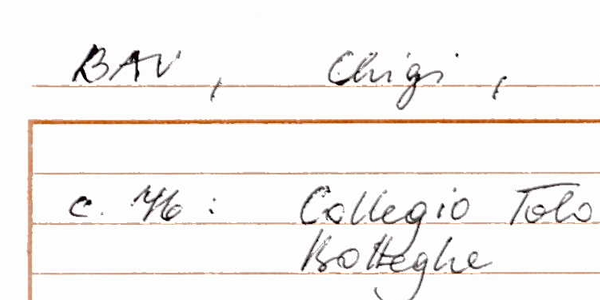 BAV, Chigi,
c. 76: Collegio Tolo
Botteghe